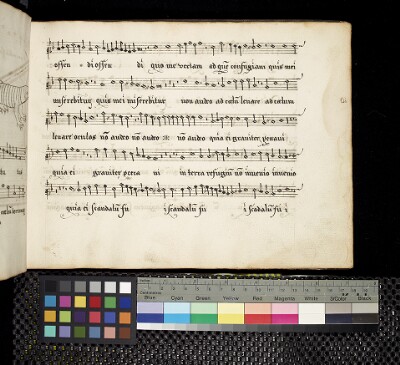 offen di offen di quo me vertam ad quē confugiam quis mei
miserebitur quis mei miserebitur non audeo ad celū levare ad celum
levare oculos nō audeo nō audeo nō audeo quia ei graviter peccavi
quia ei graviter pecca vi in terra refugiū nō invenio invenio
quia ei scandalū fu i scandalū fu i scandalū fu i
Blue Cyan Green Yellow Red Magenta White 3/Color Black